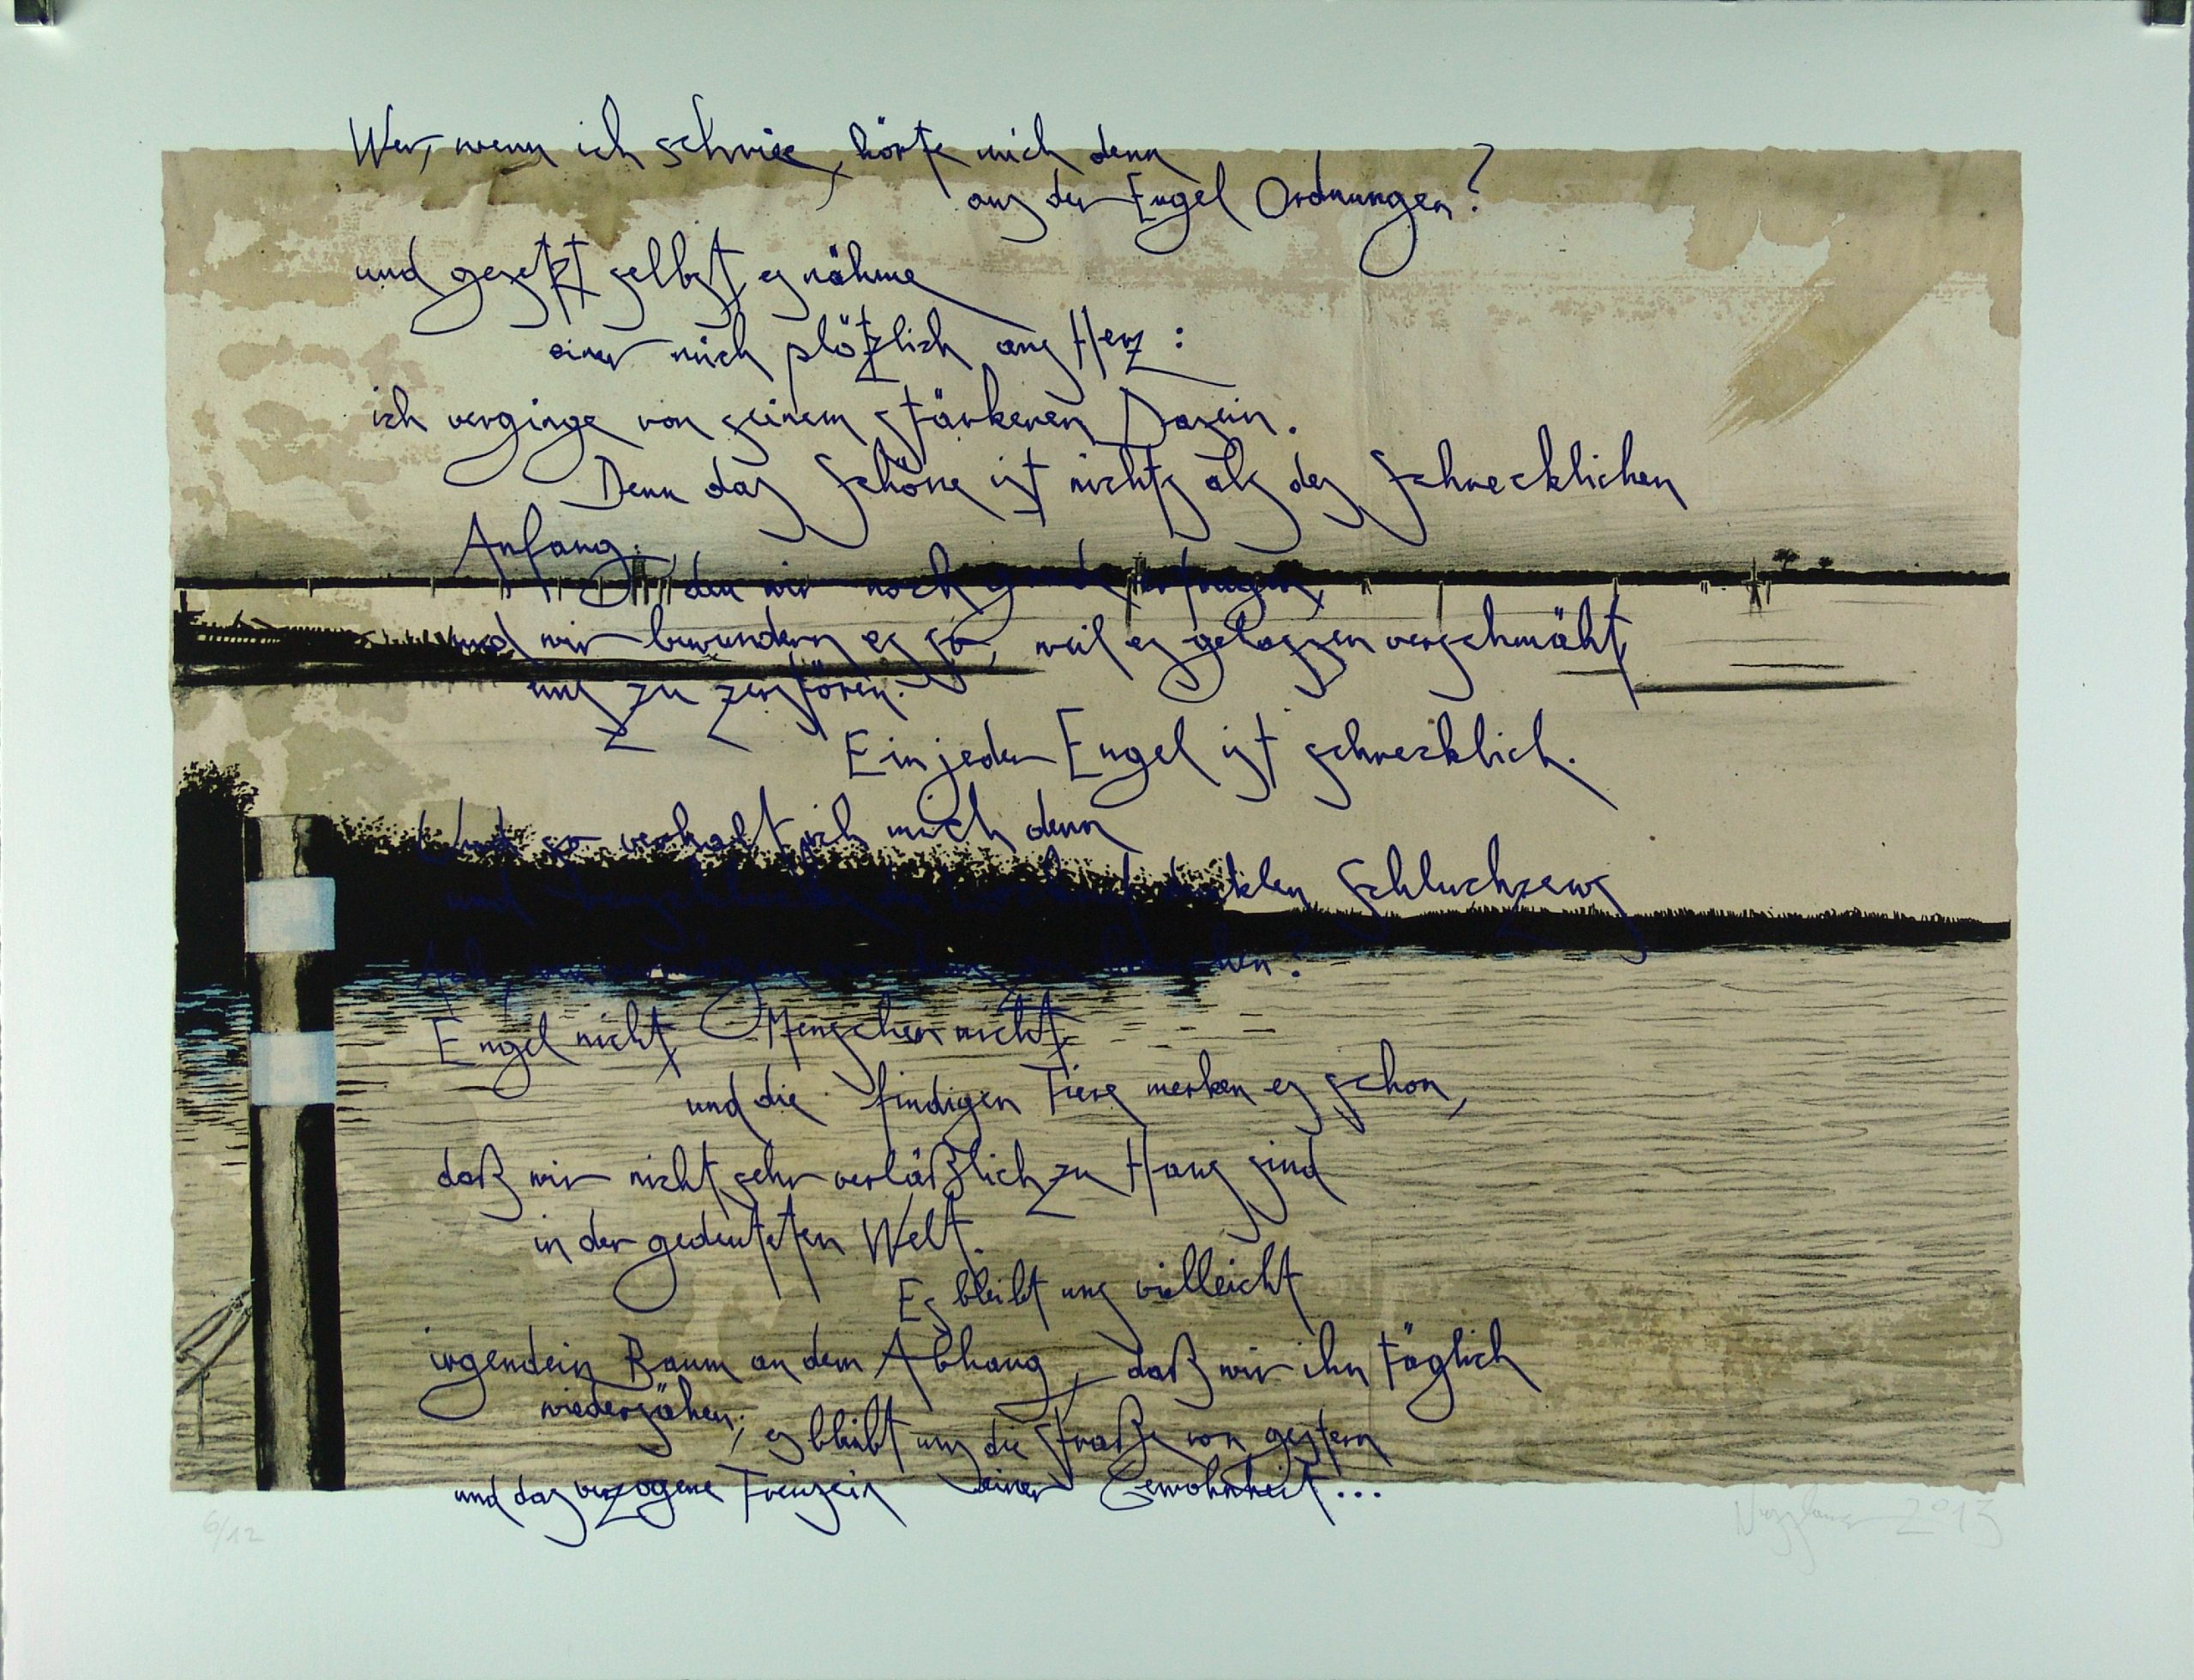 Wer, wenn ich schriee, hörte mich denn
aus der Engel Ordnungen?
und gesetzt selbst, es nähme
einer mich plötzlich ans Herz:
ich verginge von seinem stärkeren Dasein.
Denn das Schöne ist nichts als des Schrecklichen
Anfang,
den wir noch grade ertragen,
und wir bewundern es so, weil es gelassen verschmäht,
uns zu zerstören.
Ein jeder Engel ist schrecklich.
Und so verhalt ich mich denn
und dunklen Schluchzens
Engel nicht, Menschen nicht,
und die findigen Tiere merken es schon,
daß wir nicht sehr verläßlich zu Haus sind
in der gedeuteten Welt.
Es bleibt uns vielleicht
irgendein Baum an dem Abhang, daß wir ihn täglich
wiedersähen; es bleibt uns die Straße von gestern
und das verzogene Treusein einer Gewohnheit...
6/12 2013